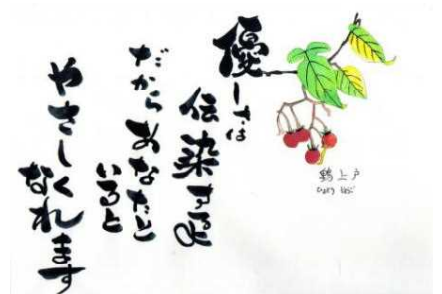 優しさは
伝染するよ
だからあなたと
いると
やさしく
なれます
鵯上戸